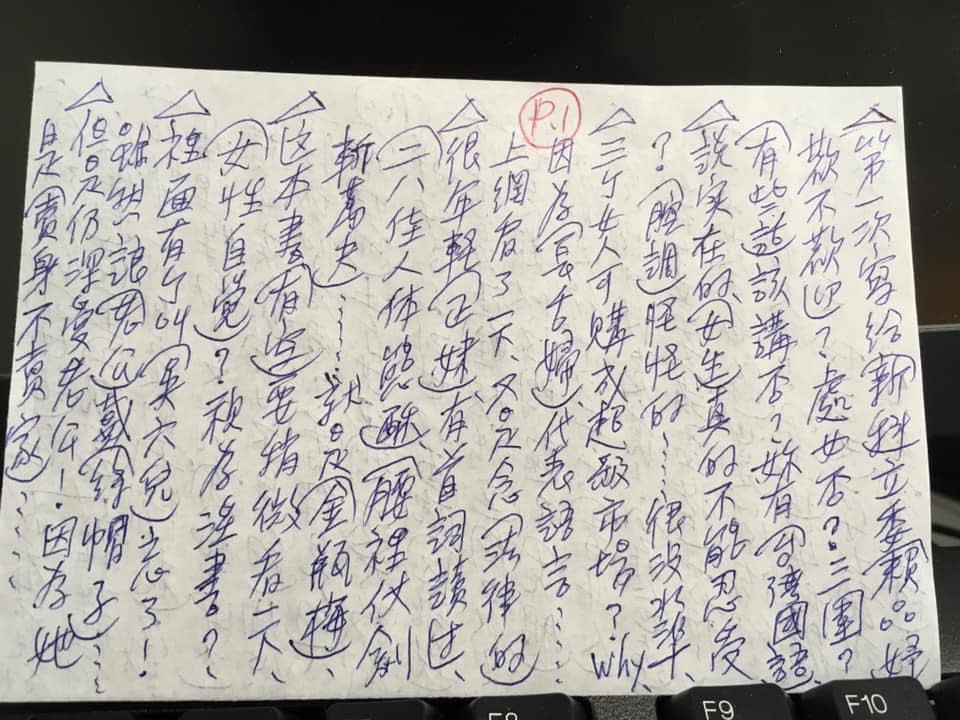 △第一次寫給新科立委賴品妤
歡不歡迎？處女否？三圍？
有些話該講否？妳有留德國語
△說實在的，女生真的不能忍受
？腔調怪怪的……很沒水準、
△三個女人可購成超級市場？Why、
因為長舌婦、代表語言……
P.1
上網看了一天、又是念法律的
△很年輕正妹、有首詞讀过、
二八佳人体態酥、腰裡仗劍
斬萬夫…… 就是金瓶梅、
△这本書有空要稍微看一下、
女性自覺？視為淫書？
△裡面有个叫吳六兒忘了！
雖然讓老公戴綠帽子……
△但是仍深受老公！因為她
是賣身不賣家……
F8
F9
F10